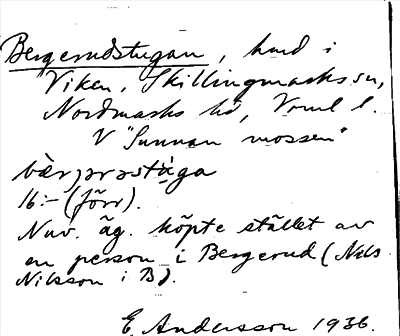 Bergerudstugan, hmd i
Viken, Skillingmarks sn,
Nordmarks hd, Vrml l.
V "Sunnan mossen"
bær̥jərəstùga
16:- (förr).
Nuv. äg. köpte stället av
en person i Bergerud (Nils
Nilsson i B).
E Andersson 1936.